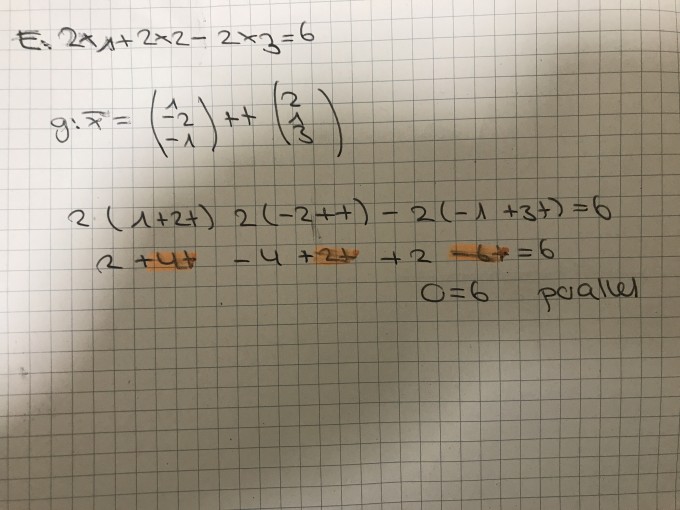 E: 2x1+2x2-2x3=6
g: x = (1 -2 -1) + t (2 1 3)
2 (1+2t) 2(-2+t) - 2(-1 +3t) = 6
2 +4t - 4 +2t +2 -6t = 6
0=6 parallel